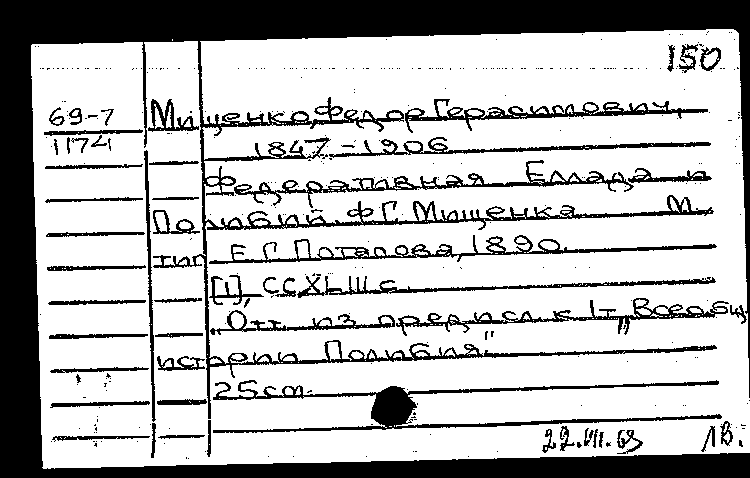 150
69-7 Мищенко, Федор Герасимович,
1174 1847-1906
Федеративная Еллада и
Полибий Ф.Г. Мищенка М.,
тип Е.Г. Потапова, 1890.
[1], CCXLIII с.
„Отт. из предисл. к 1 т. „Всеобщ.
истории Полибия"
25cm.
22.VII.69 ЛВ.